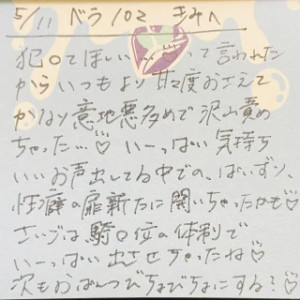 5/11 ベラ102 きみへ
犯○てほしい…♡って言われた
からいつもより甘度おさえて
かなり意地悪多めで沢山責め
ちゃった…♡いーっぱい気持ち
いいお声出してる中での、ぱいずり、
性癖の扉新たに開いちゃったかも♡
さいごは騎○位の体制で
いーっぱい出させちゃたね♡
次もおぱんつびちょびちょにする?♡